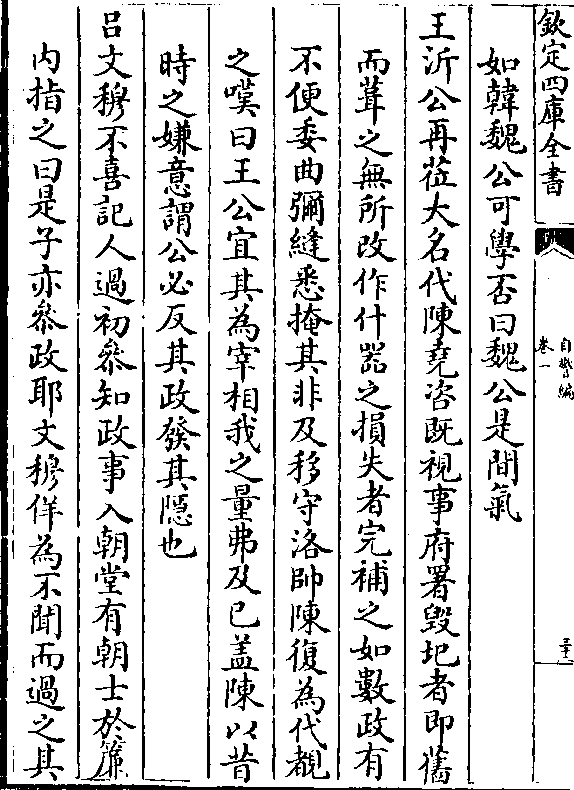 欽定四庫全書
自警編
卷一
如韓魏公可學否曰魏公是間氣
王沂公再莅大名代陳堯咨既視事府署毀圮者即舊
而葺之無所改作什器之損失者完補之如數政有
不便委曲彌縫悉掩其非及移守洛帥陳復為代覩
之嘆曰王公宜其為宰相我之量弗及已盖陳以昔
時之嫌意謂公必反其政發其隱也
吕文穆不喜記人過初叅知政事入朝堂有朝士於簾
内指之曰是子亦叅政耶文穆佯為不聞而過之其